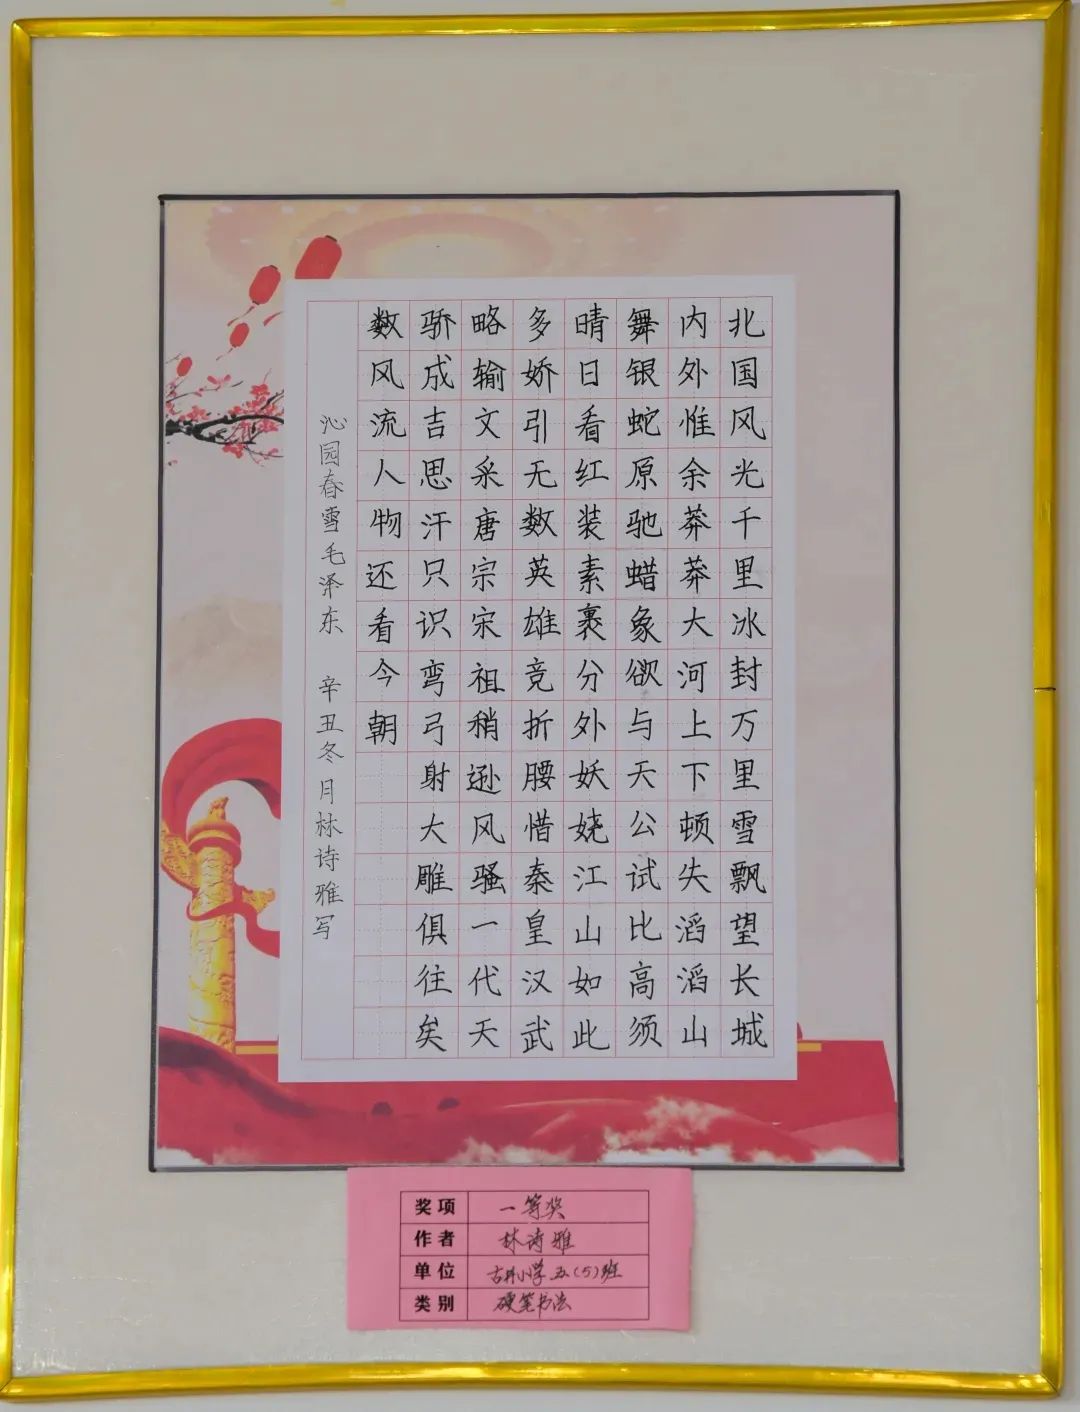 北国风光千里冰封万里雪飘望长城
内外惟余莽莽大河上下顿失滔滔山
舞银蛇原驰蜡象欲与天公试比高须
晴日看红装素裹分外妖娆江山如此
多娇引无数英雄竞折腰惜秦皇汉武
略输文采唐宗宋祖稍逊风骚一代天
骄成吉思汗只识弯弓射大雕俱往矣
数风流人物还看今朝
沁园春雪毛泽东 辛丑冬月林诗雅写
奖项 一等奖
作者 林诗雅
单位 古井小学五(5)班
类别 硬笔书法